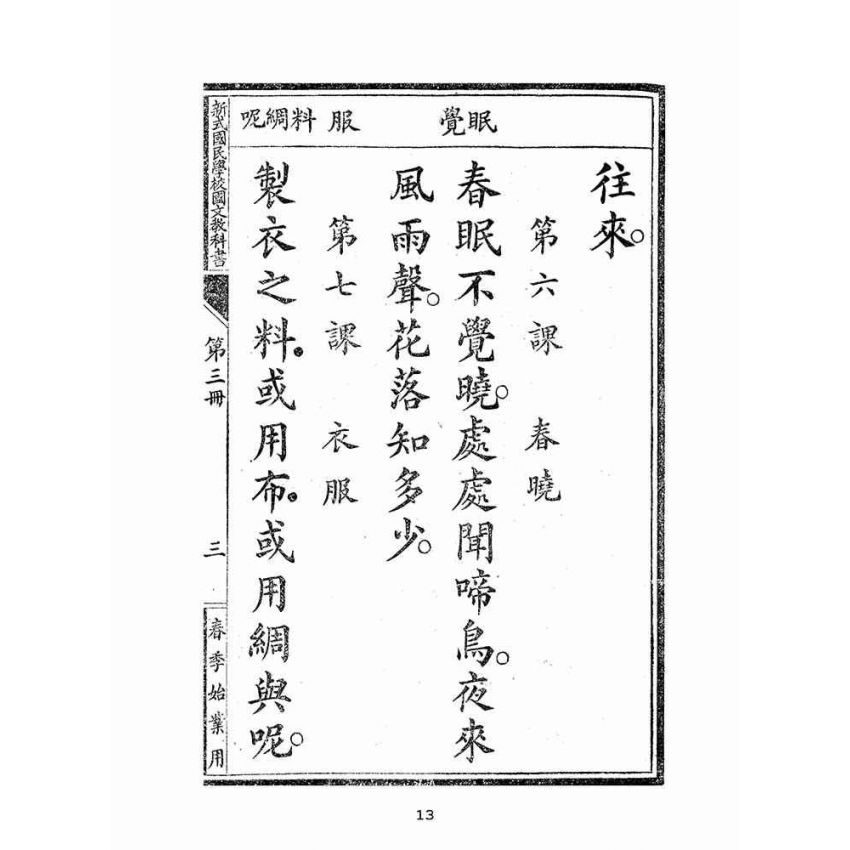 眠覺
服
料綢呢
往來。
第六課 春曉
春眠不覺曉。處處聞啼鳥。夜來
風雨聲。花落知多少。
第七課 衣服
製衣之料。或用布。或用綢與呢。
新式國民學校國文教科書
第三冊
三
春季始業用
13